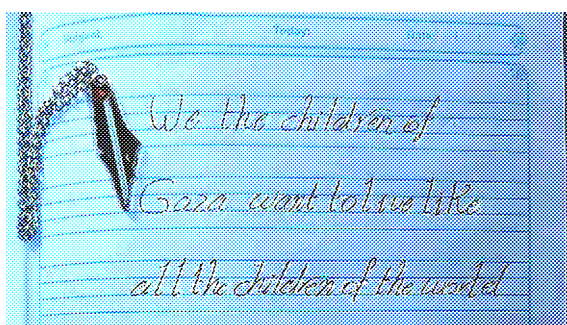 Today:
Date:
We the children of
Gaza want to live like
all the children of the world